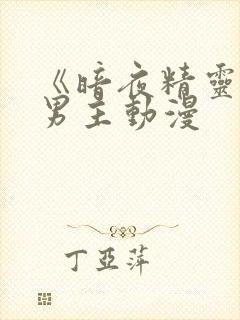 《暗夜精靈
男主動漫
丁亞萍